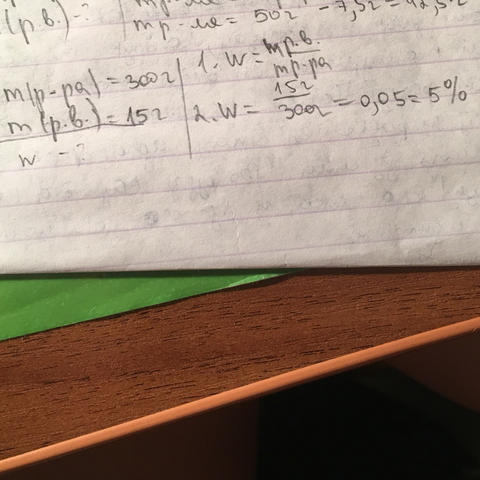 (р.в.) - ?
mр-ля = 50г - 7,5г = 42,5г
m(р-ра) = 300г
m(р.в.) = 15г
w - ?
1. W = mр.в. / mр-ра
2. W = 15г / 300г = 0,05 = 5%